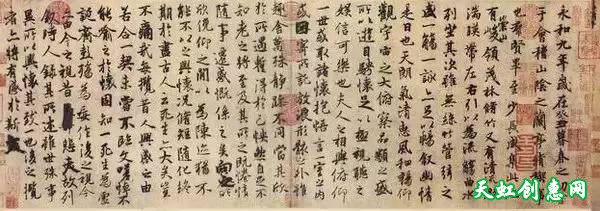 永和九年歲在癸丑暮春之初會
于會稽山陰之蘭亭脩禊事
也群賢畢至少長咸集此地
有崇山峻領茂林脩竹又有清流激
湍映帶左右引以為流觴曲水
列坐其次雖無絲竹管弦之
盛一觴一詠亦足以暢敘幽情
是日也天朗氣清惠風和暢仰
觀宇宙之大俯察品類之盛
所以遊目騁懷足以極視聽之
娛信可樂也夫人之相與俯仰
一世或取諸懷抱悟言一室之內
或因寄所託放浪形骸之外雖
趣舍萬殊靜躁不同當其欣
於所遇蹔得於己怏然自足不
知老之將至及其所之既惓情
隨事遷感慨係之矣向之所
欣俛仰之閒以為陳迹猶不
能不以之興懷況脩短隨化終
期於盡古人云死生亦大矣豈
不痛哉每攬昔人興感之由
若合一契未嘗不臨文嗟悼不
能喻之於懷固知一死生為虛
誕齊彭殤為妄作後之視今
亦由今之視昔悲夫故列
敘時人錄其所述雖世殊事
異所以興懷其致一也後之攬
者亦將有感於斯文
天虹创惠网